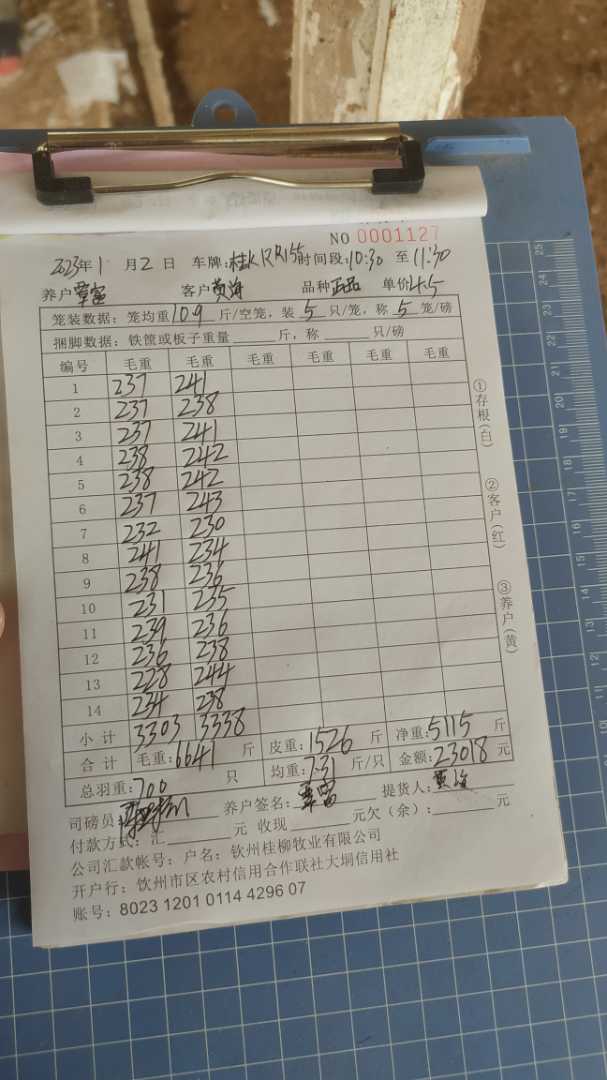 NO 0001127
2023年1月2日 车牌:桂KRR155 时间段:10:30 至 11:30
养户 覃富 客户 黄海 品种 正品 单价 4.5
笼装数据: 笼均重 10.9 斤/空笼, 装 5 只/笼, 称 5 笼/磅
捆脚数据: 铁筐或板子重量 斤, 称 只/磅
编号 毛重 毛重 毛重 毛重 毛重 毛重
1 237 241
2 237 238
3 237 241
4 238 242
5 238 242
6 237 243
7 232 230
8 241 234
9 238 236
10 231 235
11 239 236
12 236 238
13 228 244
14 234 238
小计 3303 3338
合计 毛重:6641 斤 皮重:1526 斤 净重:5115 斤
总羽重:700 只 均重:7.31 斤/只 金额:23018 元
司磅员: 养户签名: 覃富 提货人: 黄海
付款方式: 汇 元 收现 元欠(余): 元
公司汇款帐号: 户名: 钦州桂柳牧业有限公司
开户行: 钦州市区农村信用合作联社大垌信用社
账号: 8023 1201 0114 4296 07
①存根(白)
②客户(红)
③养户(黄)
25
22
21
20
19
18
17
16
15
14
13
12
11